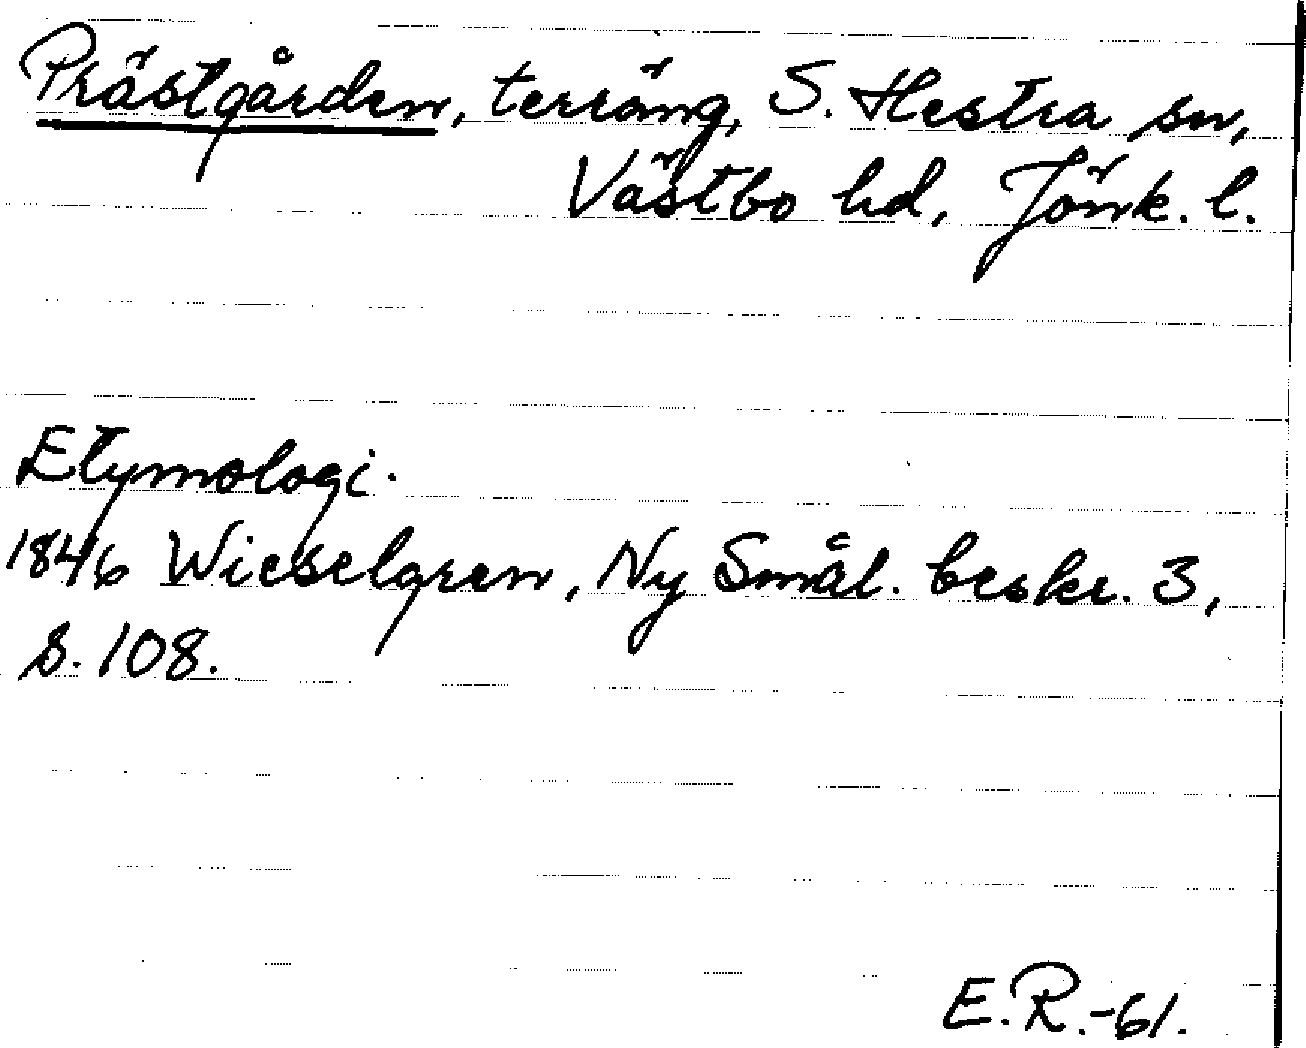 Prästgården, terräng, S. Hestra sn,
Västbo hd, Jönk. l.
Etymologi.
1846 Wieselgren, Ny Smål. beskr. 3,
s. 108.
E.R.-61.